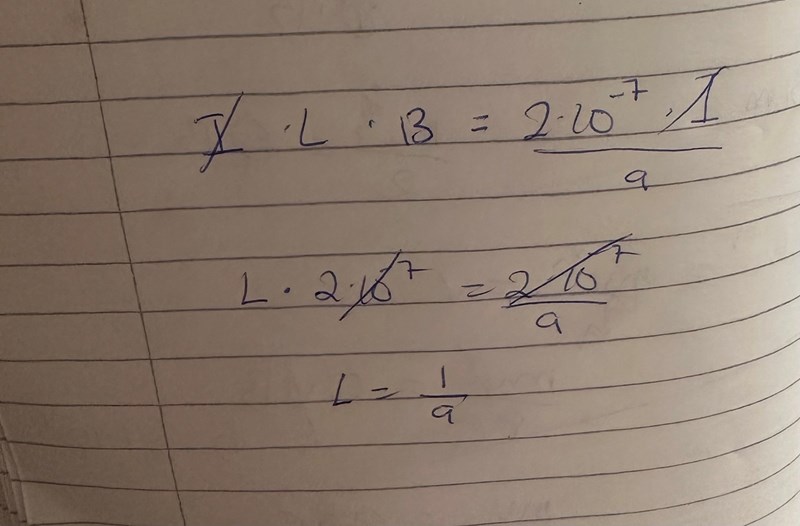 I · L · B = 2·10⁻⁷ · I / a
L · 2·10⁷ = 2 10⁷ / a
L = 1 / a